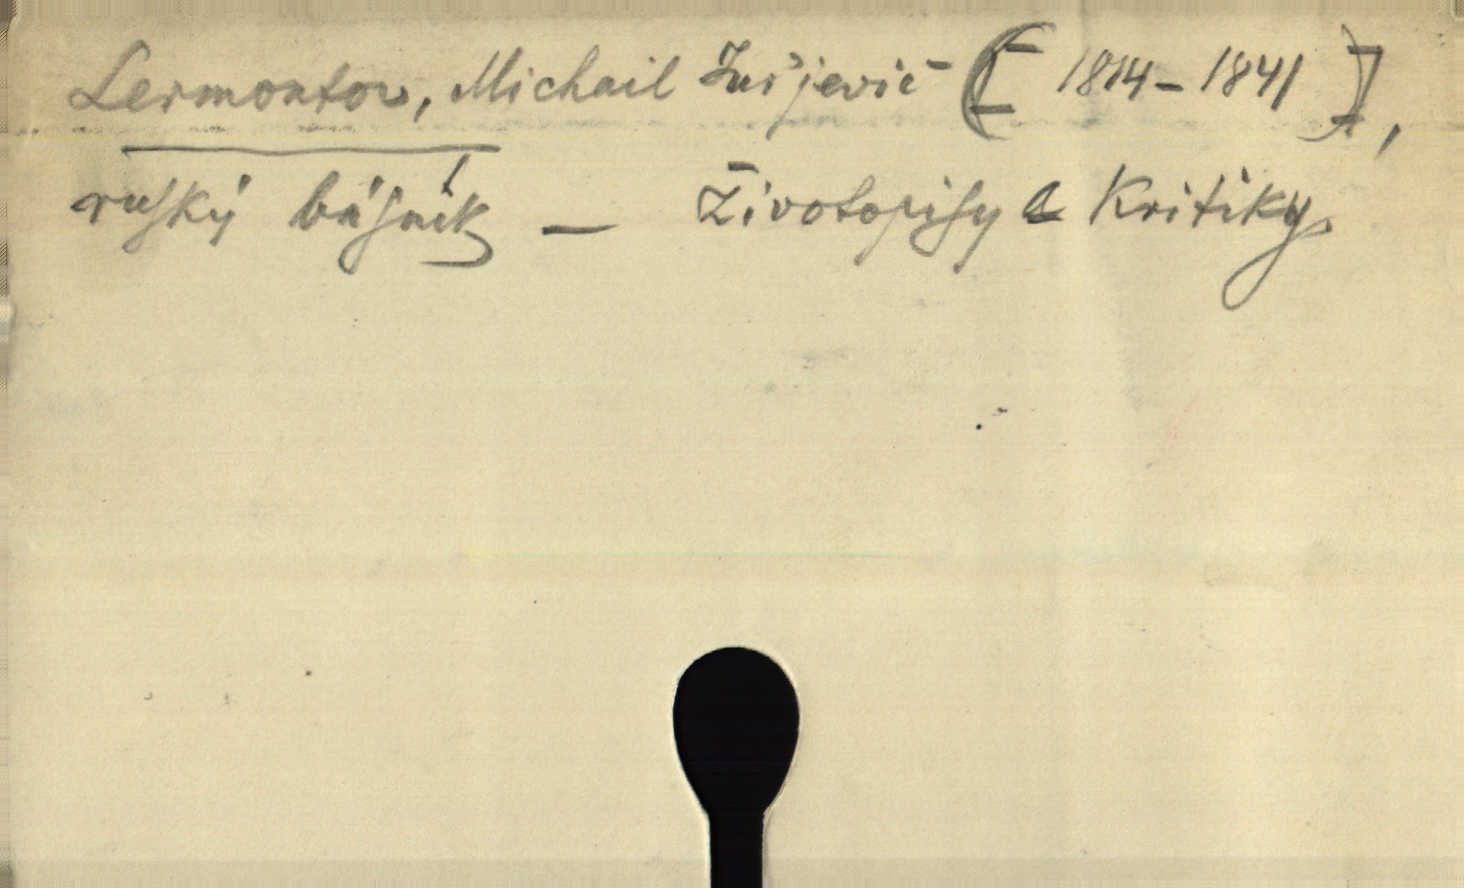 Lermontov, Michail Jurjevič [1814-1841],
ruský básník – Životopisy a Kritiky